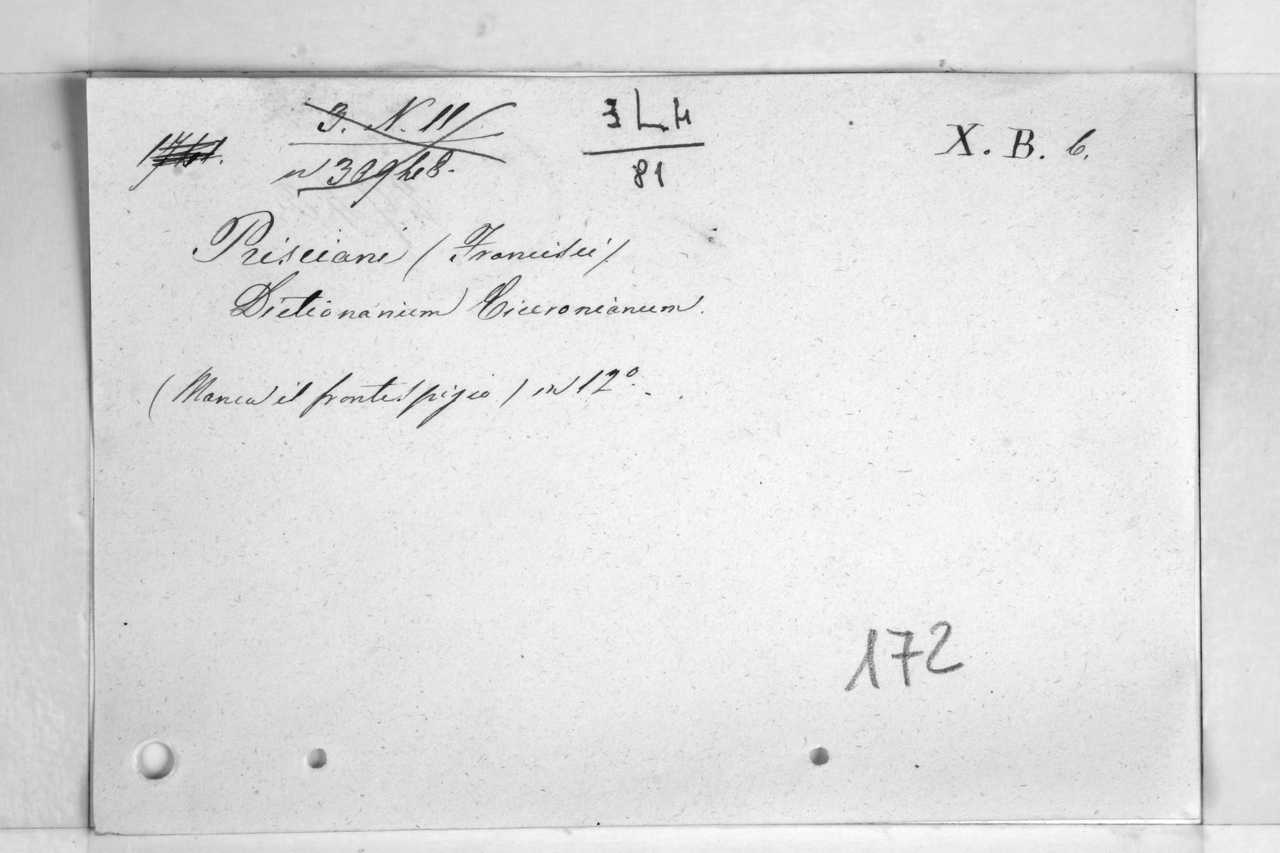 3. N. 11 3 L H X. B. 6.
81
Prisciani (Francisci)
Dictionarium Ciceronianum.
(Manca il frontespizio) in 12º.
172